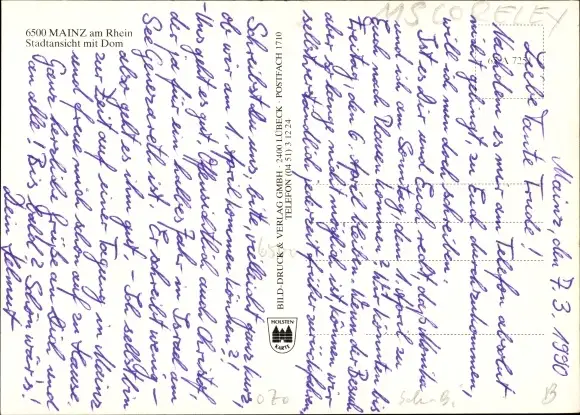 6500 MAINZ am Rhein
Stadtansicht mit Dom
Mainz den 7.3.1990
Liebe Tante Trude!
Nachdem es mir am Telefon absolut
nicht gelingt, zu Euch durchzukommen,
will ich nun doch schreiben.
Ist es dir und Euch recht, daß Monika
und ich am Sonntag, den 1. April zu
Euch nach Plauen kommen?
Freitag, den 6. April bleiben. Wenn der Besuch
aber so lange nicht möglich ist, können wir
selbstverständlich jederzeit früher zurückfahren.
BILD-DRUCK & VERLAG GMBH · 2400 LÜBECK · POSTFACH 1710
TELEFON (04 51) 3 12 24
HOLSTEN
KARTE
Schreibst du uns, bitte, vielleicht ganz kurz,
ob wir am 1. April kommen können?!
Uns geht es gut, offensichtlich auch Christof,
der ja für ein halbes Jahr in Israel am
See Genezareth ist. Er schreibt wenig –
aber geht es ihm gut. – Ich selbst bin
zur Zeit auf einer Tagung in Mainz
und freue mich schon auf zu Hause.
Ganz herzliche Grüße an Dich und
an alle! Bis bald? Schön wär's!
Dein Helmut